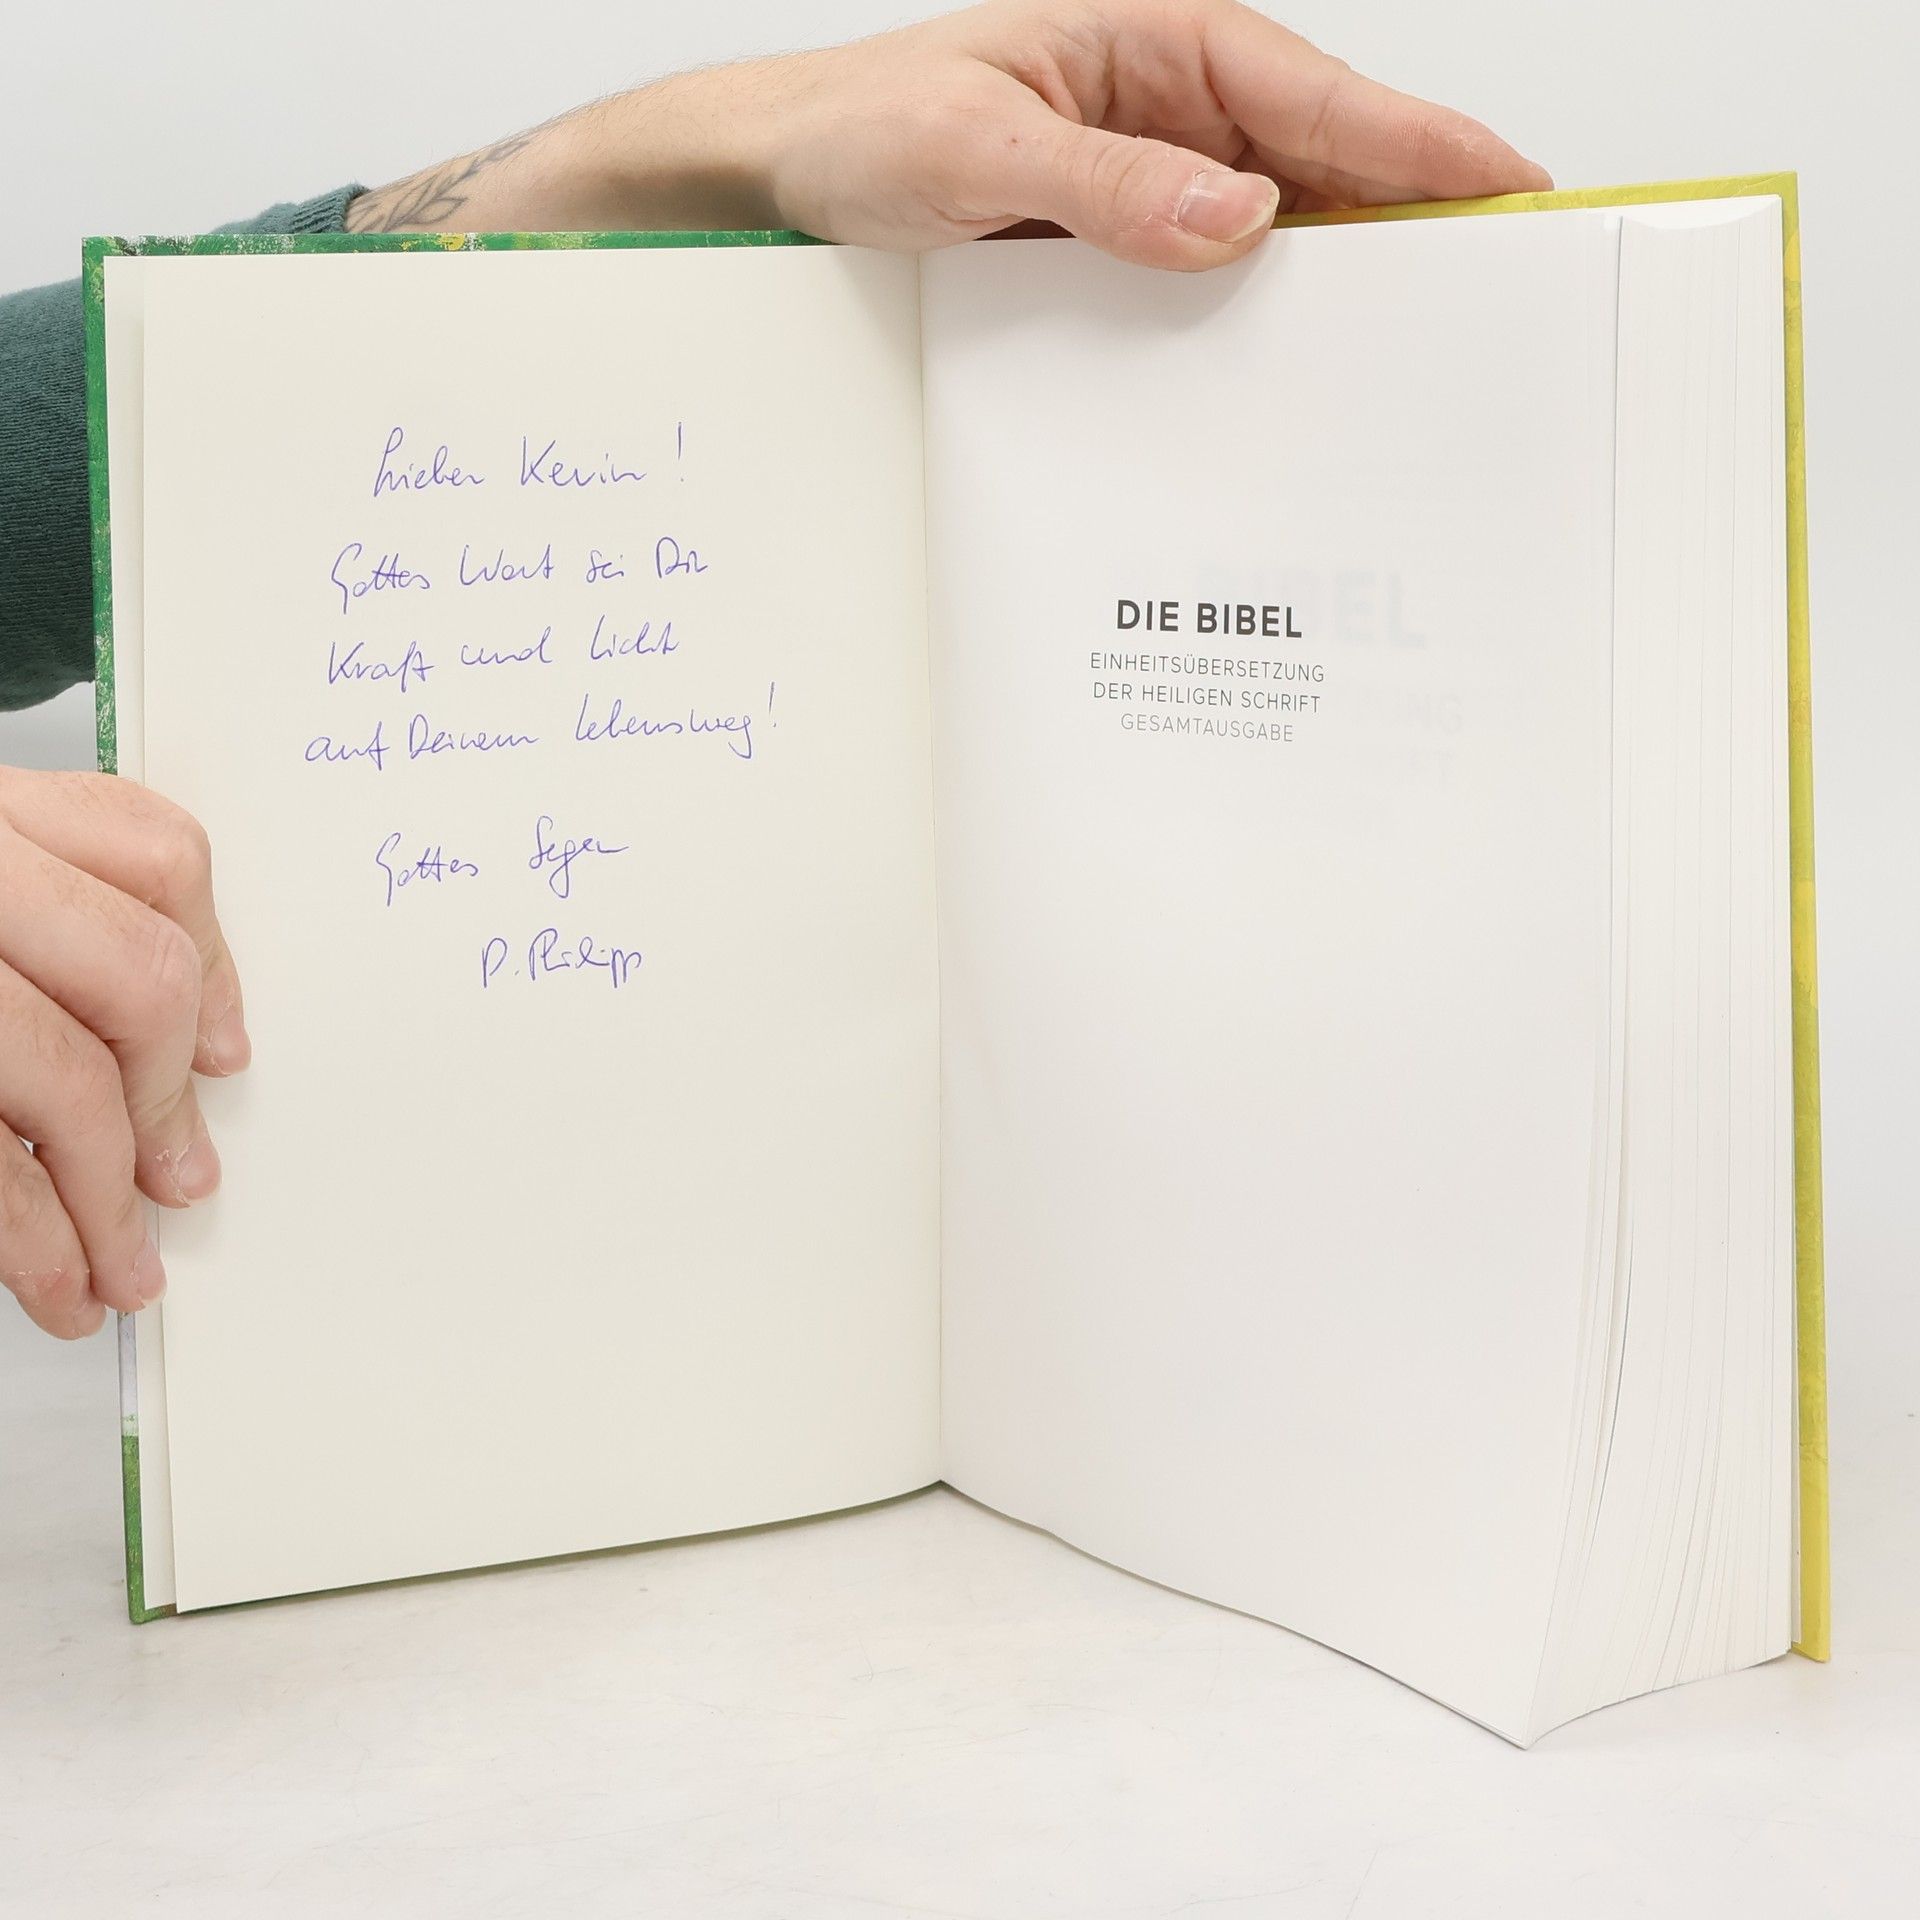 Lieber Kevin!
Gottes Wort sei Dir
Kraft und Licht
auf Deinem Lebensweg!
Gottes Segen
P. Philipp
DIE BIBEL
EINHEITSÜBERSETZUNG
DER HEILIGEN SCHRIFT
GESAMTAUSGABE